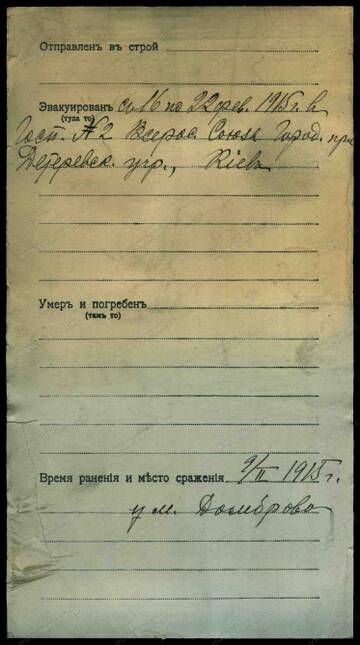 Отправленъ въ строй
Эвакуированъ съ 16 по 22 фев. 1915 г. в
(туда то)
Госп. №2 Всерос. Союза Город. при
учр., Кіевъ
Умеръ и погребенъ
(тамъ то)
Время раненія и мѣсто сраженія 9/II 1915 г.
у м. Домброво